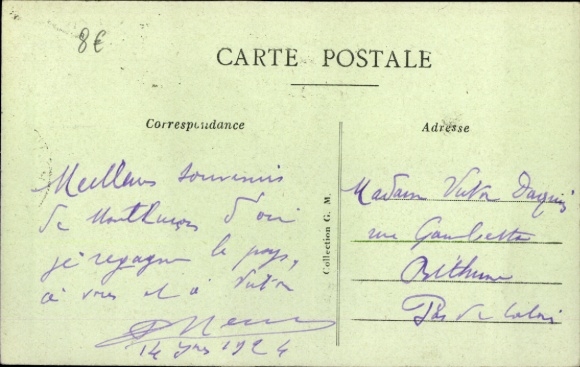 8€
CARTE POSTALE
Correspondance
Adresse
Meilleurs souvenirs
de Montluçon d'où
je regagne le pays,
à vous et à Victor
14 1924
Collection G. M.
Madame Victor
rue Gambetta
Béthune
Pas de Calais